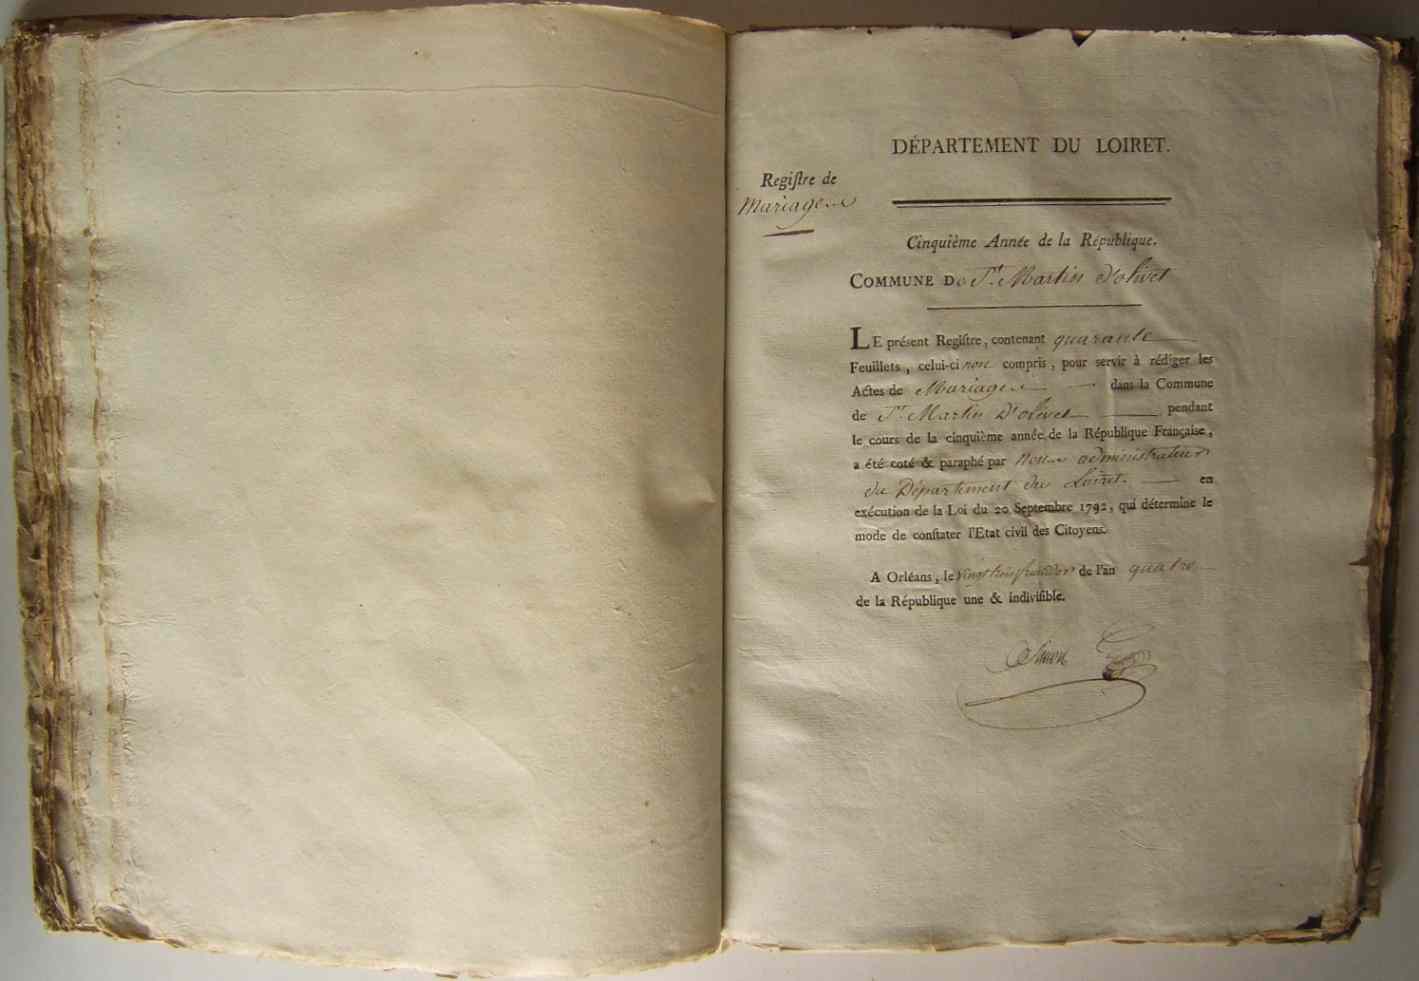 DÉPARTEMENT DU LOIRET.
Regiſtre de
Mariage
Cinquième Année de la République.
COMMUNE De St. Martin d'olivet
LE préſent Regiſtre, contenant quarante
Feuillets, celui-ci non compris, pour servir à rédiger les
Actes de Mariage dans la Commune
de St. Martin D'olivet pendant
le cours de la cinquième année de la République Française,
a été coté & paraphé par Nous administrateur
du Département du Loiret. en
exécution de la Loi du 20 Septembre 1792, qui détermine le
mode de conſtater l'Etat civil des Citoyens.
A Orléans, le vingt trois fructidor de l'an quatre
de la République une & indiviſible.
Simon